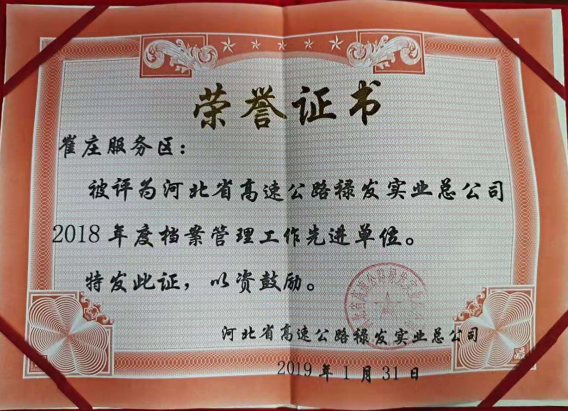 荣誉证书
崔庄服务区：
被评为河北省高速公路禄发实业总公司
2018年度档案管理工作先进单位。
特发此证，以资鼓励。
河北省高速公路禄发实业总公司
2019年1月31日